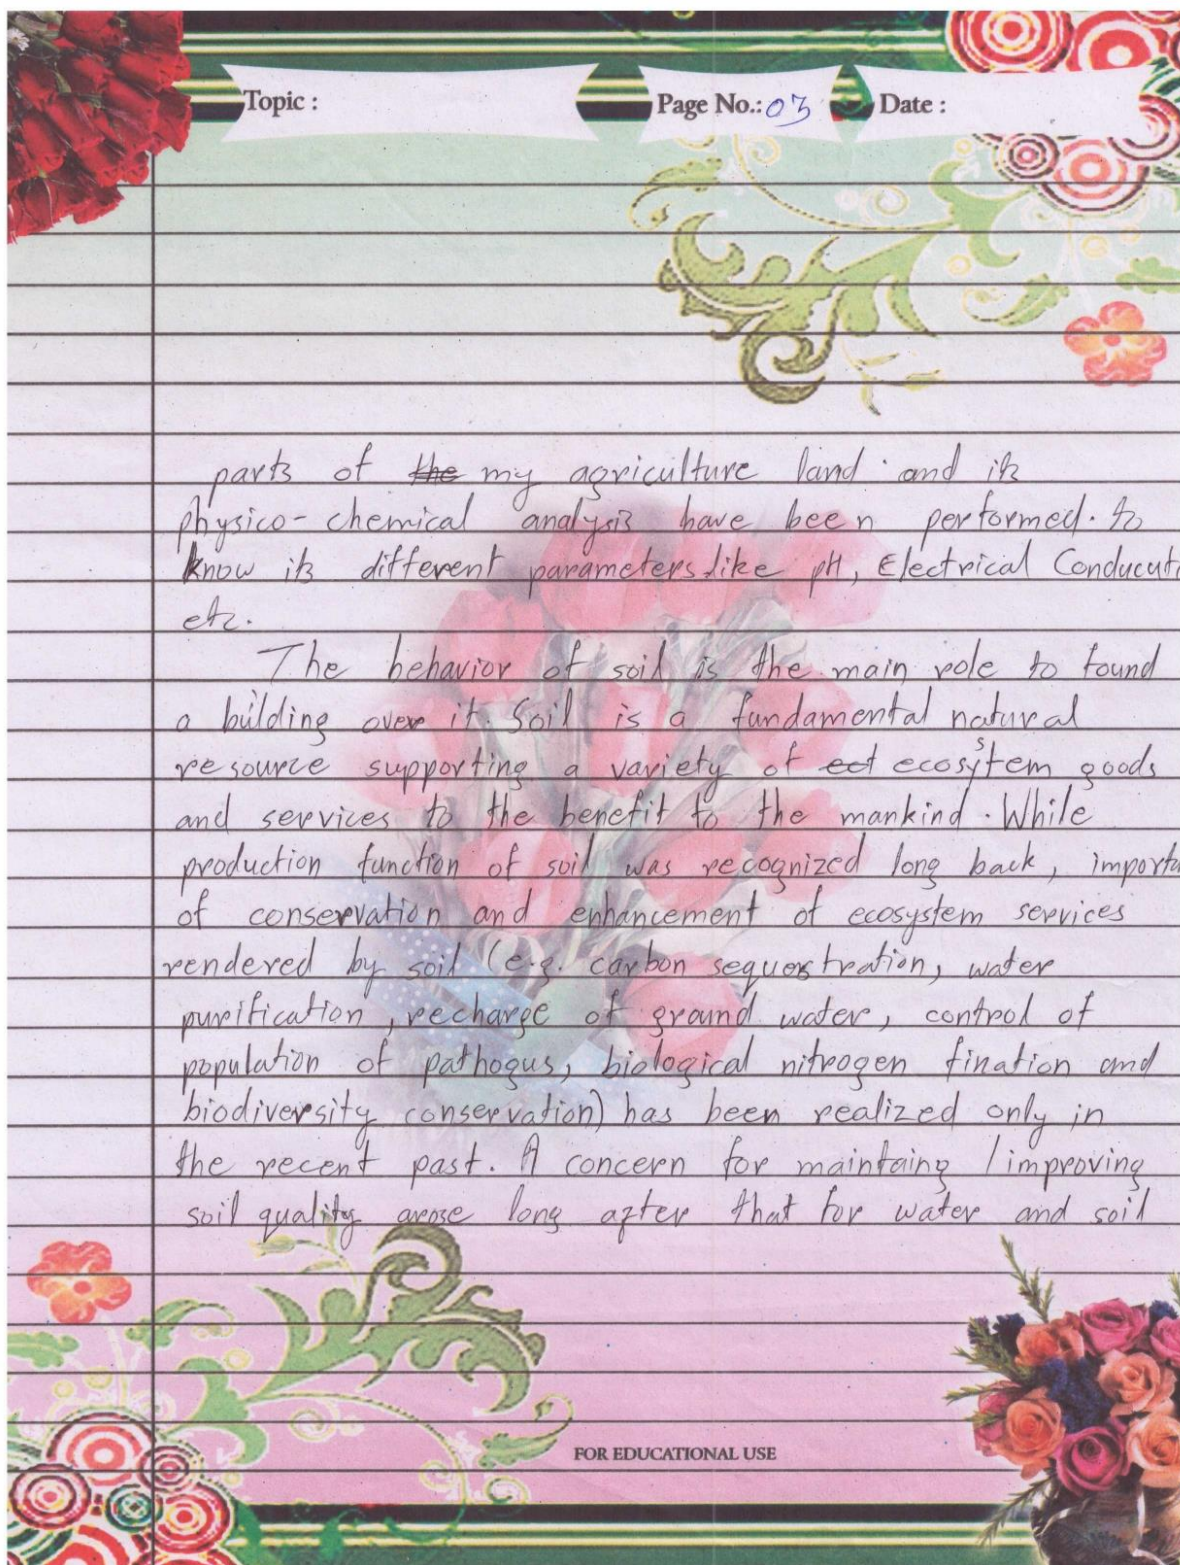 Topic :
Page No.: 03
Date :
parts of ~~the~~ my agriculture land and its
physico-chemical analysis have been performed. to
know its different parameters like pH, Electrical Conducuti
etc.
The behavior of soil is the main role to found
a building over it. Soil is a fundamental natural
resource supporting a variety of ~~ect~~ ecosystem goods
and services to the benefit to the mankind. While
production function of soil was recognized long back, importa
of conservation and enhancement of ecosystem services
rendered by soil (e.g. carbon sequestration, water
purification, recharge of ground water, control of
population of pathogus, biological nitrogen fination and
biodiversity conservation) has been realized only in
the recent past. A concern for maintaing / improving
soil quality arose long after that for water and soil
FOR EDUCATIONAL USE